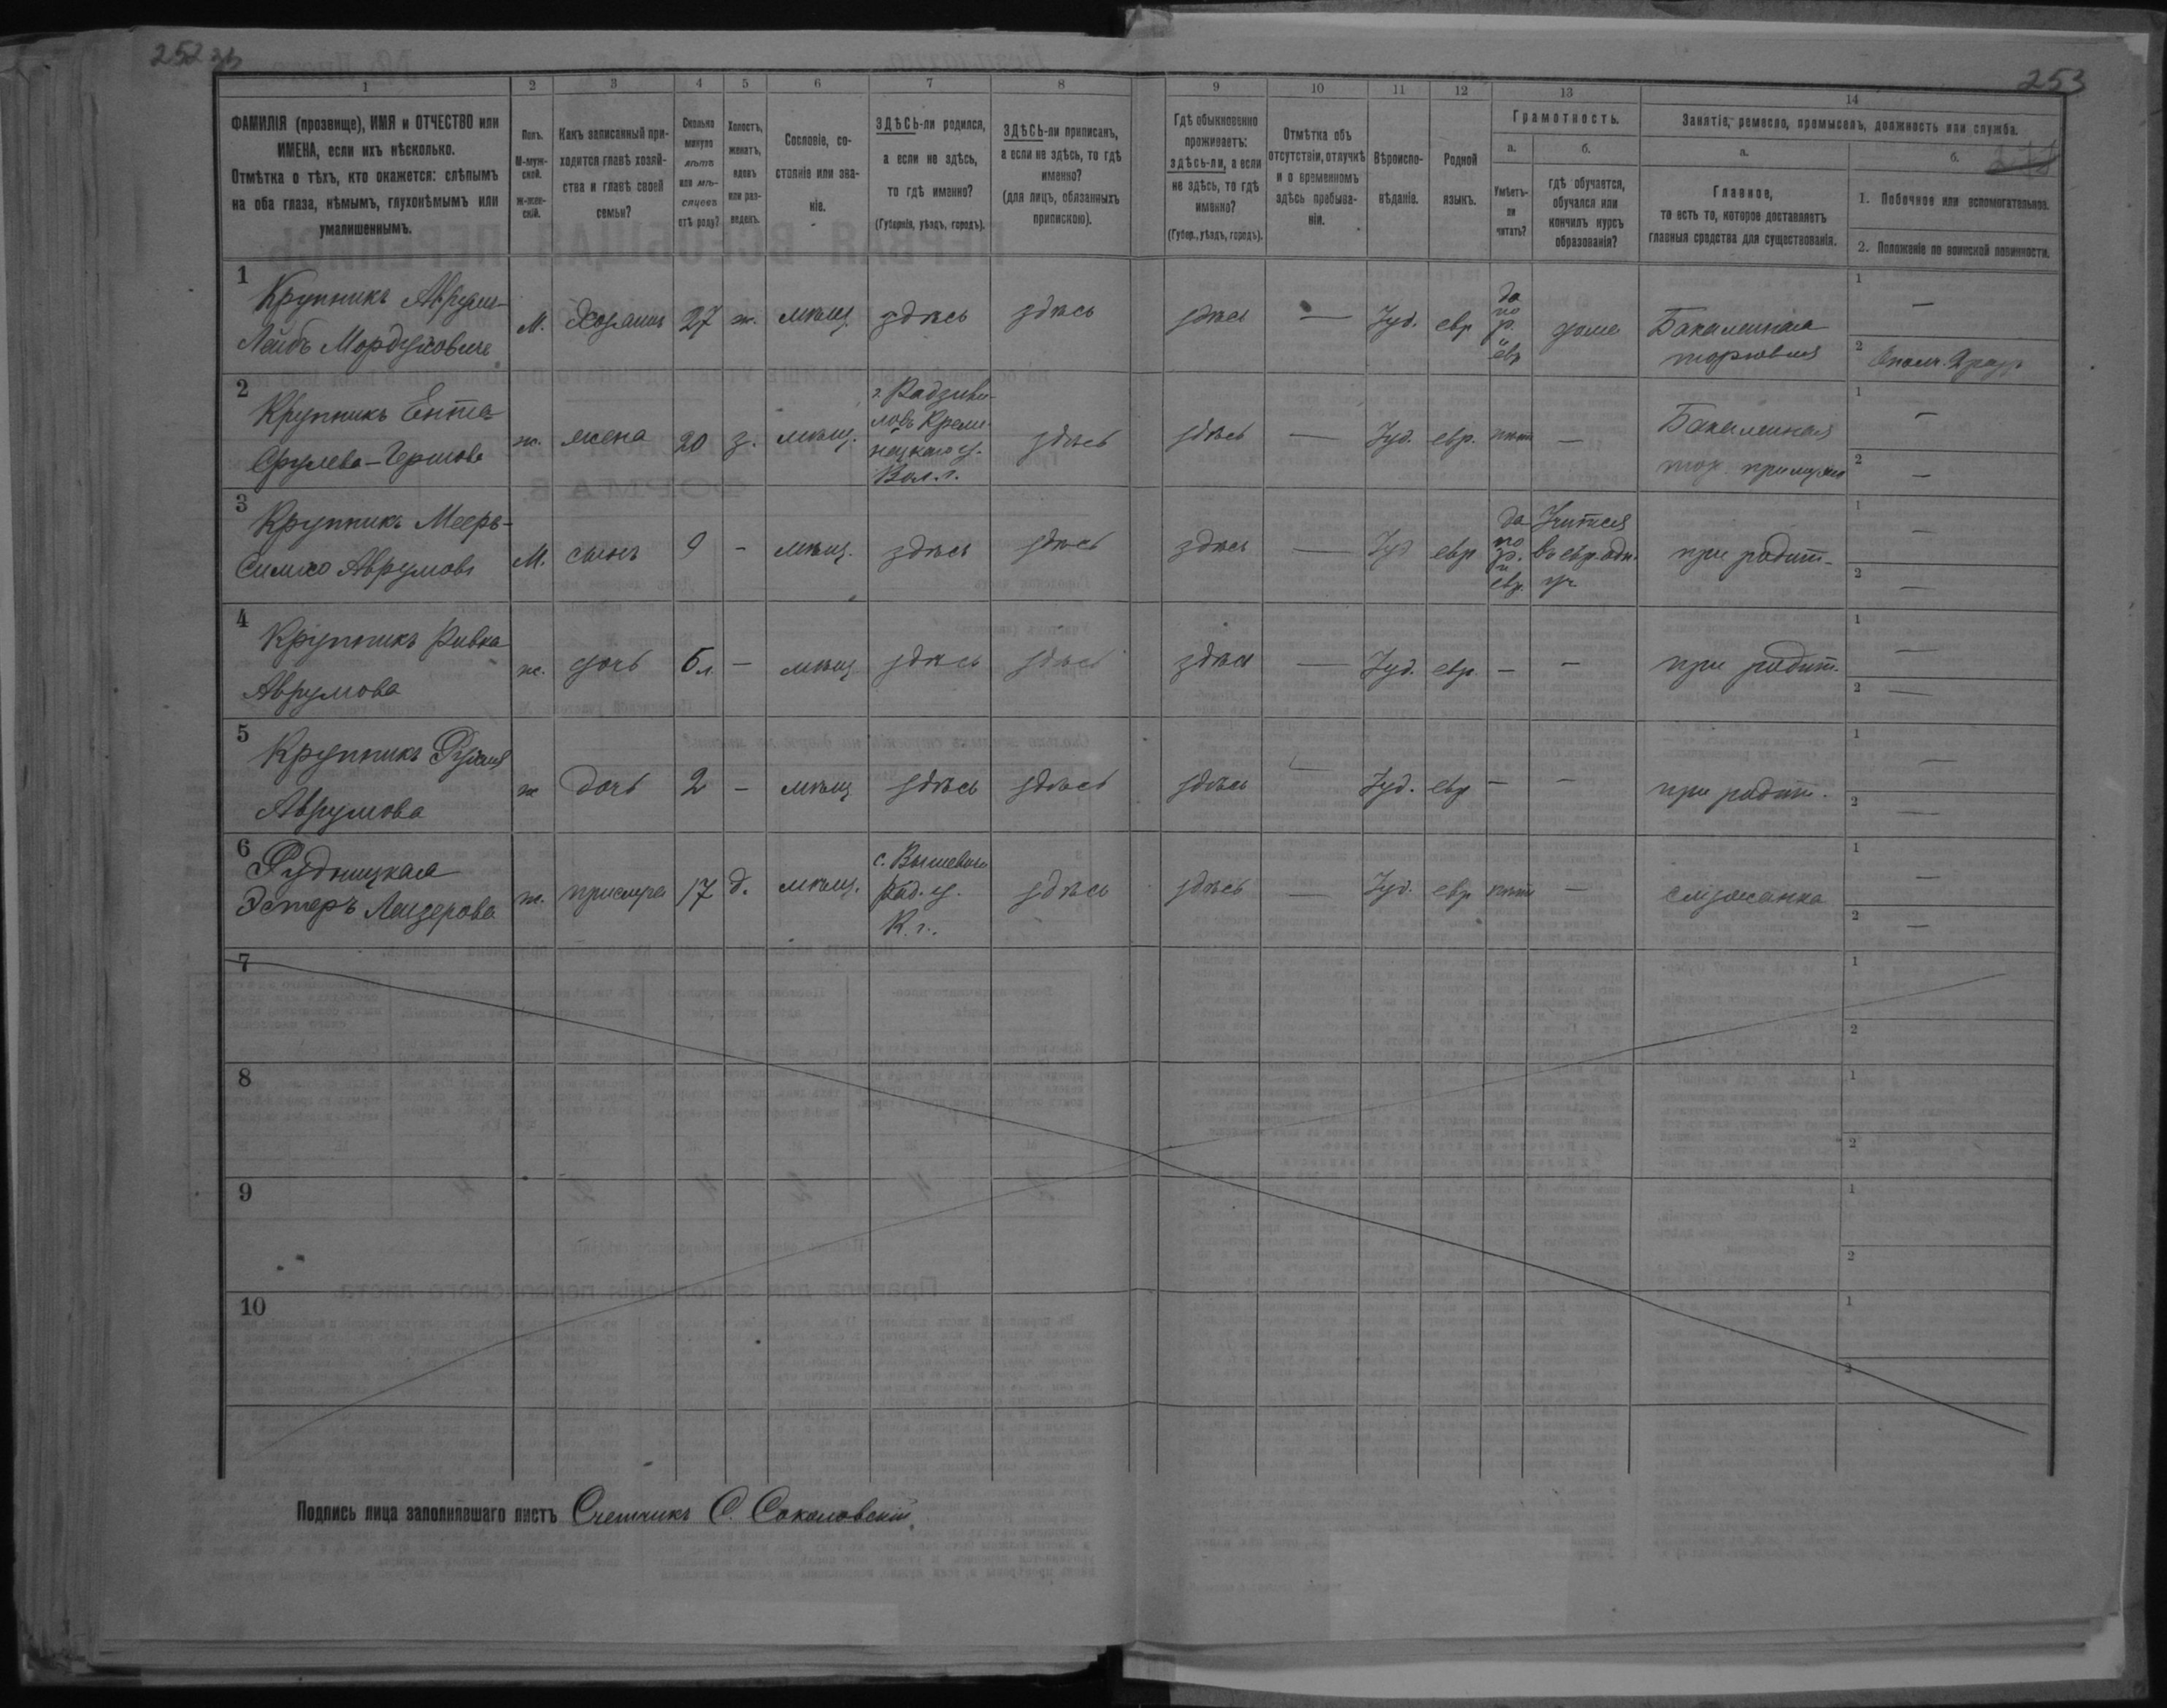 252 зв
253
1
2
3
4
5
6
7
8
9
10
11
12
13
14
ФАМИЛІЯ (прозвище), ИМЯ и ОТЧЕСТВО или
ИМЕНА, если ихъ нѣсколько.
Отмѣтка о тѣхъ, кто окажется: слѣпымъ
на оба глаза, нѣмымъ, глухонѣмымъ или
умалишеннымъ.
Полъ.
М-муж-
ской.
Ж-жен-
скій.
Какъ записанный при-
ходится главѣ хозяй-
ства и главѣ своей
семьи?
Сколько
минуло
лѣтъ
или мѣ-
сяцевъ
отъ роду?
Холостъ,
женатъ,
вдовъ
или раз-
веденъ.
Сословіе, со-
стояніе или зва-
ніе.
ЗДѢСЬ-ли родился,
а если не здѣсь,
то гдѣ именно?
(Губернія, уѣздъ, городъ).
ЗДѢСЬ-ли приписанъ,
а если не здѣсь, то гдѣ
именно?
(для лицъ, обязанныхъ
припискою).
Гдѣ обыкновенно
проживаетъ:
здѣсь-ли, а если
не здѣсь, то гдѣ
именно?
(Губер., уѣздъ, городъ).
Отмѣтка объ
отсутствіи, отлучкѣ
и о временномъ
здѣсь пребыва-
ніи.
Вѣроиспо-
вѣданіе.
Родной
языкъ.
Грамотность.
а.
Умѣетъ-
ли
читать?
б.
гдѣ обучается,
обучался или
кончилъ курсъ
образованія?
Занятіе, ремесло, промыселъ, должность или служба.
а.
Главное,
то есть то, которое доставляетъ
главныя средства для существованія.
б.
1. Побочное или вспомогательное.
2. Положеніе по воинской повинности.
1
Крупникъ Аврумъ-
Лейбъ Мордуховъ
М. хозяинъ 27 ж. мѣщ. здѣсь здѣсь здѣсь — Іуд. евр
да
по
р.
и
евр
дома
Бакалейная
торговля
1 —
2
2
Крупникъ Ента
Срулева-Гершова
ж. жена 20 з. мѣщ.
г. Радзиви-
ловъ Креме-
нецкаго у.
Вол. г.
здѣсь здѣсь — Іуд. евр. нѣтъ —
Бакалейная
тор.
1 —
2 —
3
Крупникъ Мееръ-
Симхо Аврумовъ
М. сынъ 9 — мѣщ. здѣсь здѣсь здѣсь — Іуд евр
да
по
р.
и
евр.
Учится
въ евр.
уч.
при родит.
1 —
2 —
4
Крупникъ Ривка
Аврумова
ж. дочь 5 л. — мѣщ здѣсь здѣсь здѣсь — Іуд. евр. — — при родит.
1 —
2 —
5
Крупникъ Рухля
Аврумова
ж дочь 2 — мѣщ здѣсь здѣсь здѣсь — Іуд. евр — — при родит.
1 —
2 —
6
Рудницкая
Эстеръ Лейзерова
ж. прислуга 17 д. мѣщ.
с. Вышевичи
Рад. у.
К. г.
здѣсь здѣсь — Іуд. евр нѣтъ — служанка
1 —
2 —
7
1
2
8
1
2
9
1
2
10
1
2
Подпись лица заполнявшаго листъ Счетчикъ С. Соколовскій